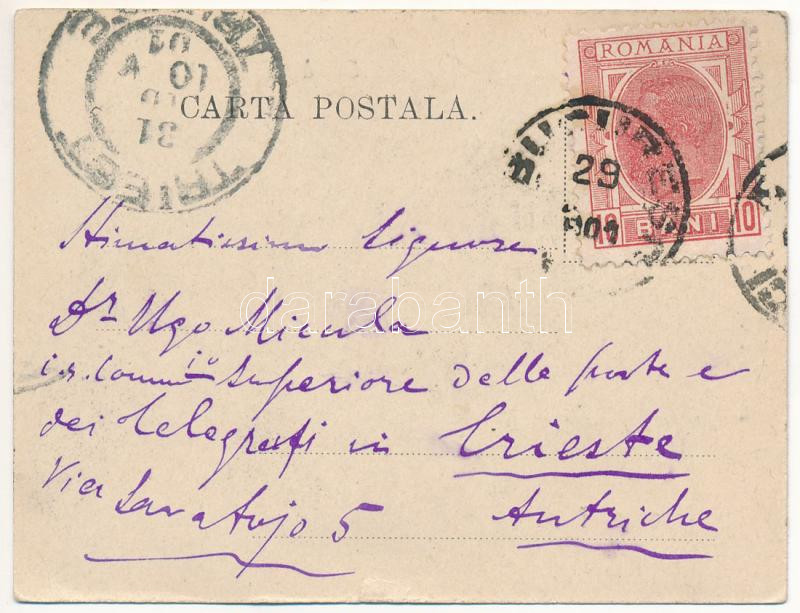 CARTA POSTALA.
ROMANIA
10 BANI 10
TRIEST
31
10 V
01
29
901
Stimatissimo Signore
Dr Ugo Micula
i.r. Commio Superiore delle poste e
dei telegrafi in Trieste
Via
5 Autriche
darabanth